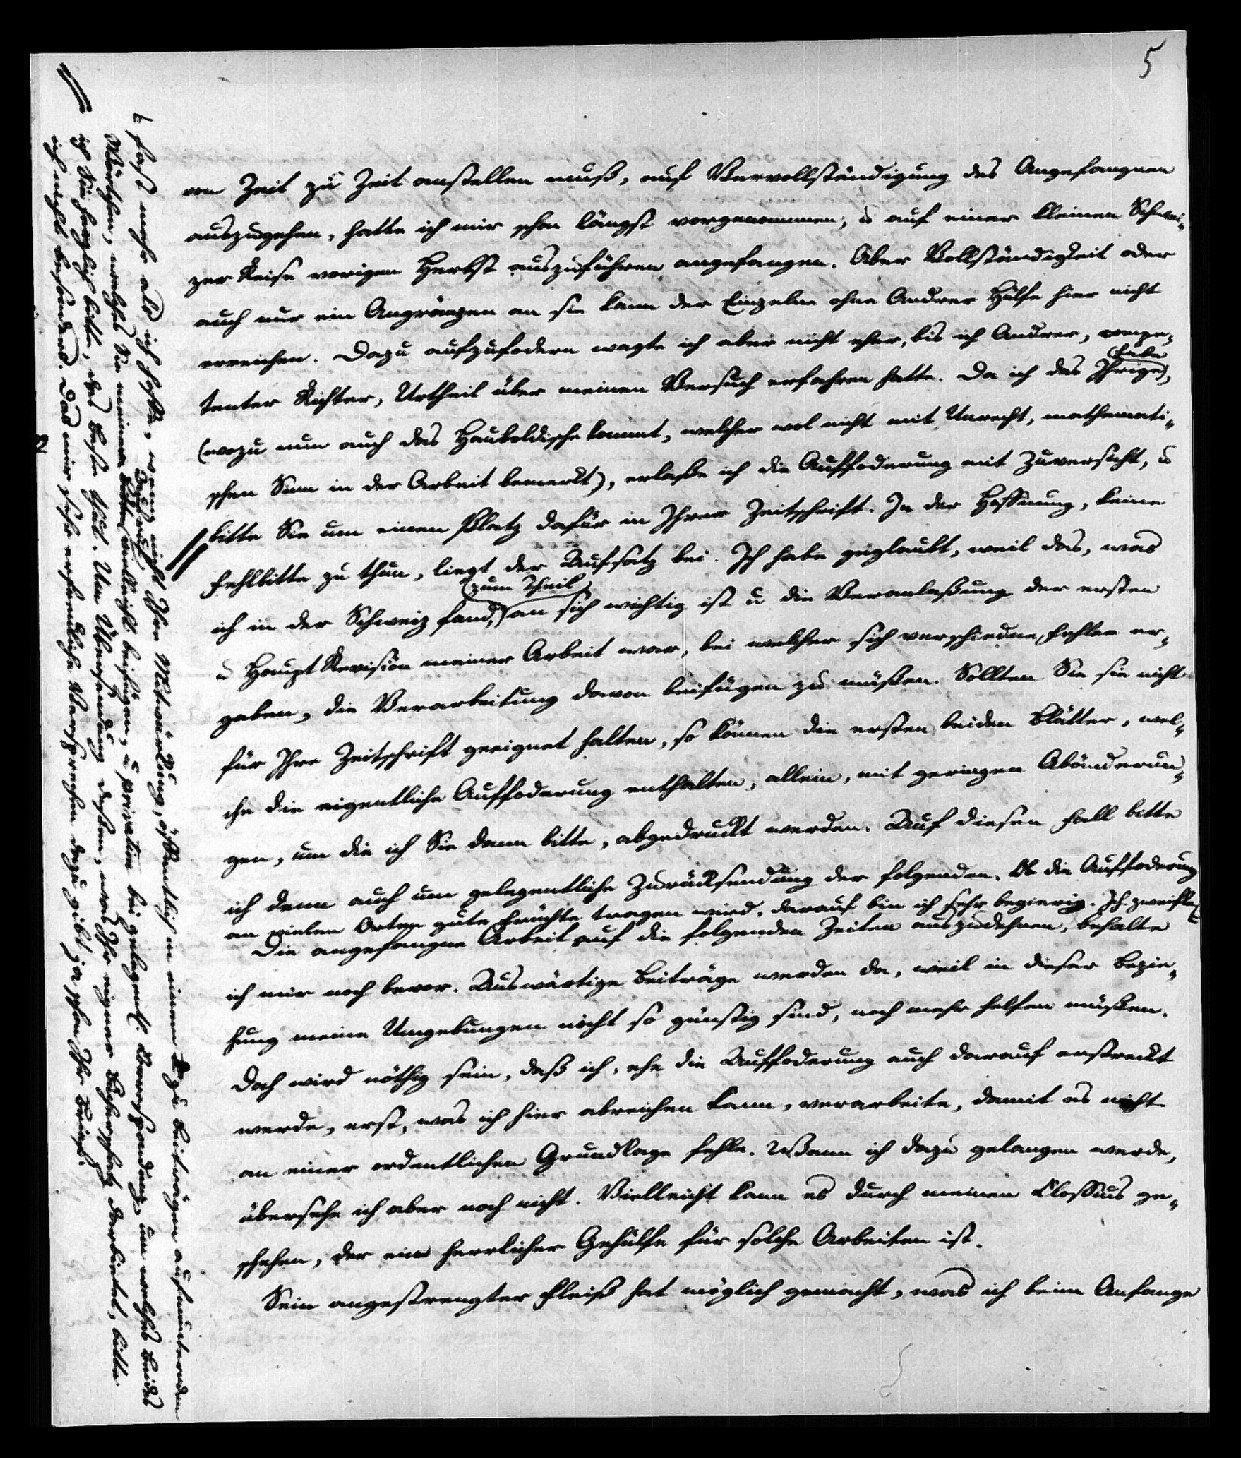 5
von Zeit zu Zeit anstellen muß, auf Vervollständigung des Angefangnen
auszugehen, hatte ich mir schon längst vorgenommen, u auf einer kleinen Schwei-
zer Reise vorigen Herbst auszuführen angefangen. Aber Vollständigkeit oder
auch nur ein Angränzen an sie kann der Einzelne ohne Andrer Hülfe hier nicht
erreichen. Dazu aufzufodern wagte ich aber nicht eher, bis ich Andrer, compe-
tenter Richter, Urtheil über meinen Versuch erfahren hatte. Da ich das Ihrige habe,
(wozu nun auch das Hauboldische kommt, welcher wol nicht mit Unrecht, mathemati-
schen Sinn in der Arbeit bemerkt), erlaße ich die Auffoderung mit Zuversicht, u
bitte Sie um einen Platz dafür in Ihrer Zeitschrift. In der Hoffnung, keine
Fehlbitte zu thun, liegt der Aufsatz bei. Ich habe geglaubt, weil das, was
ich in der Schweiz fand, (zum Theil) an sich wichtig ist u die Veranlaßung der ersten
u Haupt Revision meiner Arbeit war, bei welcher sich verschiedne Fehler er-
gaben, die Verarbeitung davon beifügen zu müßen. Sollten Sie sie nicht
für Ihre Zeitschrift geeignet halten, so können die ersten beiden Blätter, wel-
che die eigentliche Auffoderung enthalten, allein, mit geringen Abänderun-
gen, um die ich Sie dann bitte, abgedruckt werden. Auf diesen Fall bitte
ich denn auch um gelegentliche Zurücksendung der folgenden. Ob die Auffoderung
an vielen Orten gute Früchte tragen wird, darauf bin ich sehr begierig. Ich zweifle
Die angefangne Arbeit auf die folgenden Zeiten auszudehnen, behalte
ich mir noch bevor. Auswärtige Beiträge werden da, weil in dieser Bezie-
hung meine Umgebungen nicht so günstig sind, noch mehr helfen müßen.
Doch wird nöthig sein, daß ich, ehe die Auffoderung auch darauf erstreckt
werde, erst, was ich hier abreichen kann, verarbeite, damit es nicht
an einer ordentlichen Grundlage fehle. Wann ich dazu gelangen werde,
übersehe ich aber noch nicht. Vielleicht kann es durch meinen Clossius ge-
schehen, der ein herrlicher Gehülfe für solche Arbeiten ist.
Sein angestrengter Fleiß hat möglich gemacht, was ich beim Anfange
fast mehr als ich hoffe, wenn nicht Ihre Mitwirkung, öffentlich in einem dazu beitragen aufmunternden
Wörtchen, welches Sie meiner Bitte vielleicht beifügen, u privatim bei gelegentl. Correspondenz, um welches beides
ich Sie herzlich bitte, das Beste thut. Um Übersendung deßen, was Ihr eigner Bücherschatz darbietet, bitte
ich nicht besonders. Das mir sehr erfreuliche Versprechen dazu gibt ja schon Ihr Brief.